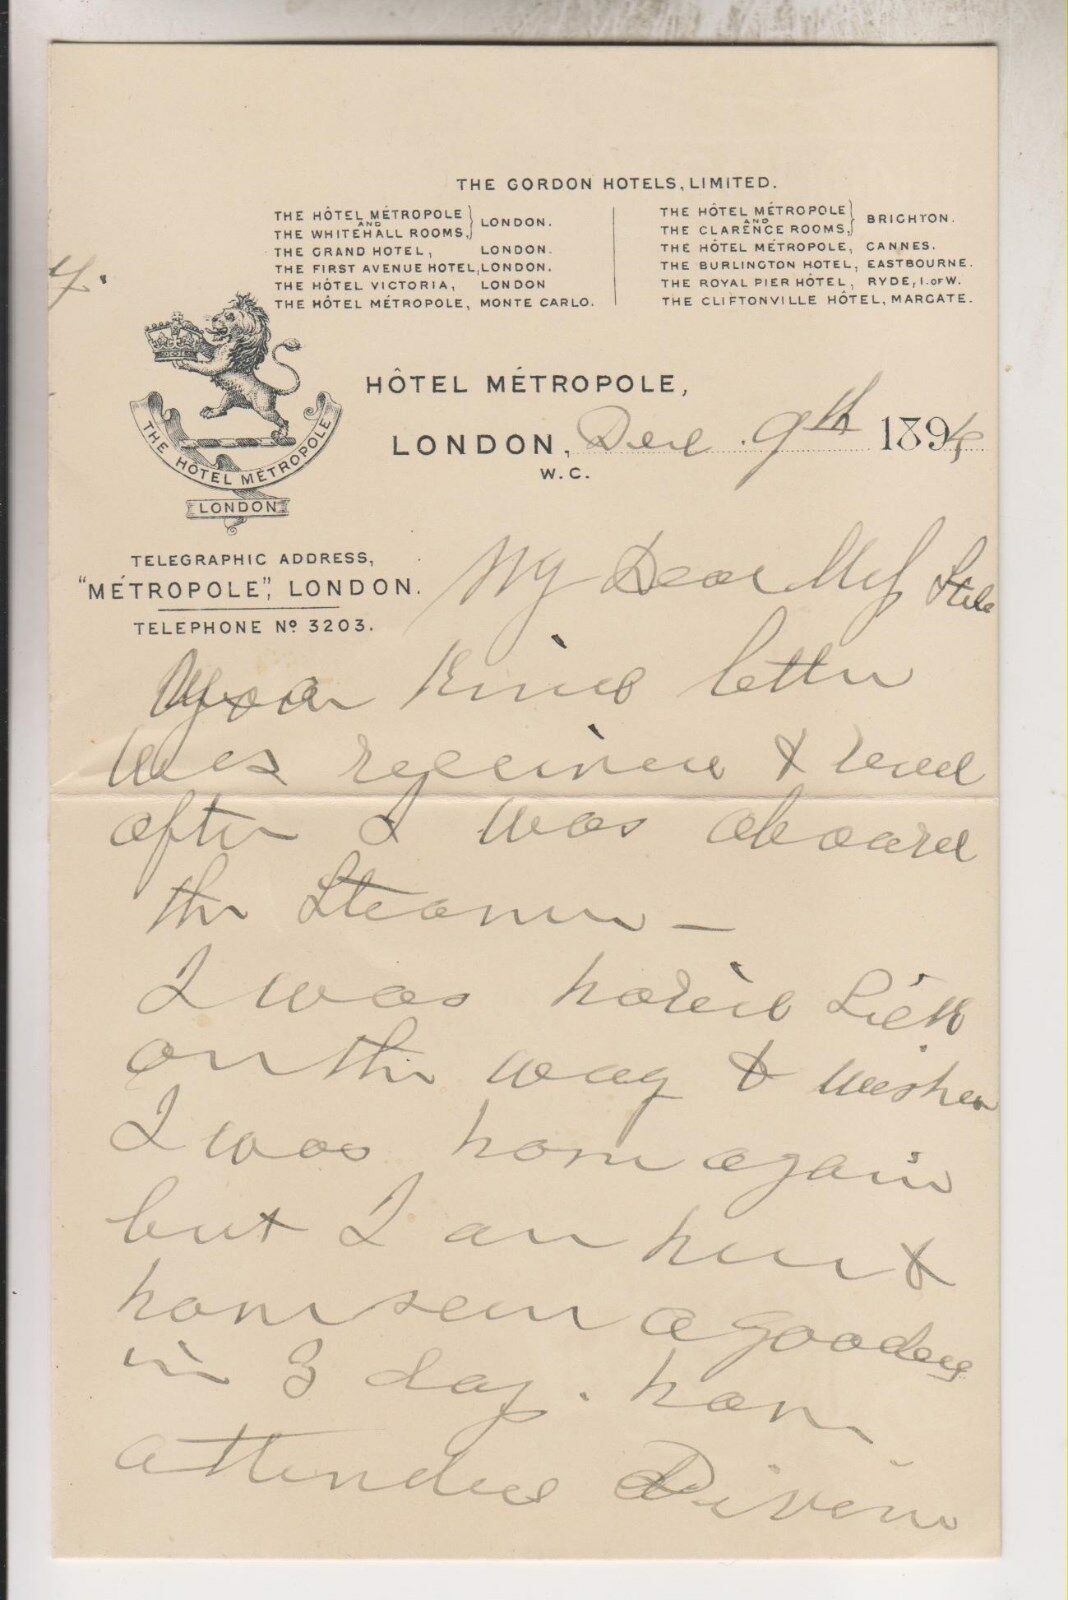 THE GORDON HOTELS, LIMITED.
THE HÔTEL MÉTROPOLE
AND
THE WHITEHALL ROOMS,} LONDON.
THE GRAND HOTEL, LONDON.
THE FIRST AVENUE HOTEL, LONDON.
THE HÔTEL VICTORIA, LONDON
THE HÔTEL MÉTROPOLE, MONTE CARLO.
THE HÔTEL MÉTROPOLE
AND
THE CLARENCE ROOMS,} BRIGHTON.
THE HÔTEL MÉTROPOLE, CANNES.
THE BURLINGTON HOTEL, EASTBOURNE.
THE ROYAL PIER HÔTEL, RYDE, I. OF W.
THE CLIFTONVILLE HÔTEL, MARGATE.
THE HÔTEL MÉTROPOLE
LONDON
HÔTEL MÉTROPOLE,
LONDON, Dec 9th 189
W.C.
TELEGRAPHIC ADDRESS,
"MÉTROPOLE", LONDON.
TELEPHONE Nº 3203.
My Dear
Your kind letter
was received & read
after I was aboard
the Steamer —
I was sick
on the way & wished
I was home again
but I am here &
have seen a good deal
in 3 days. have
attended Divine